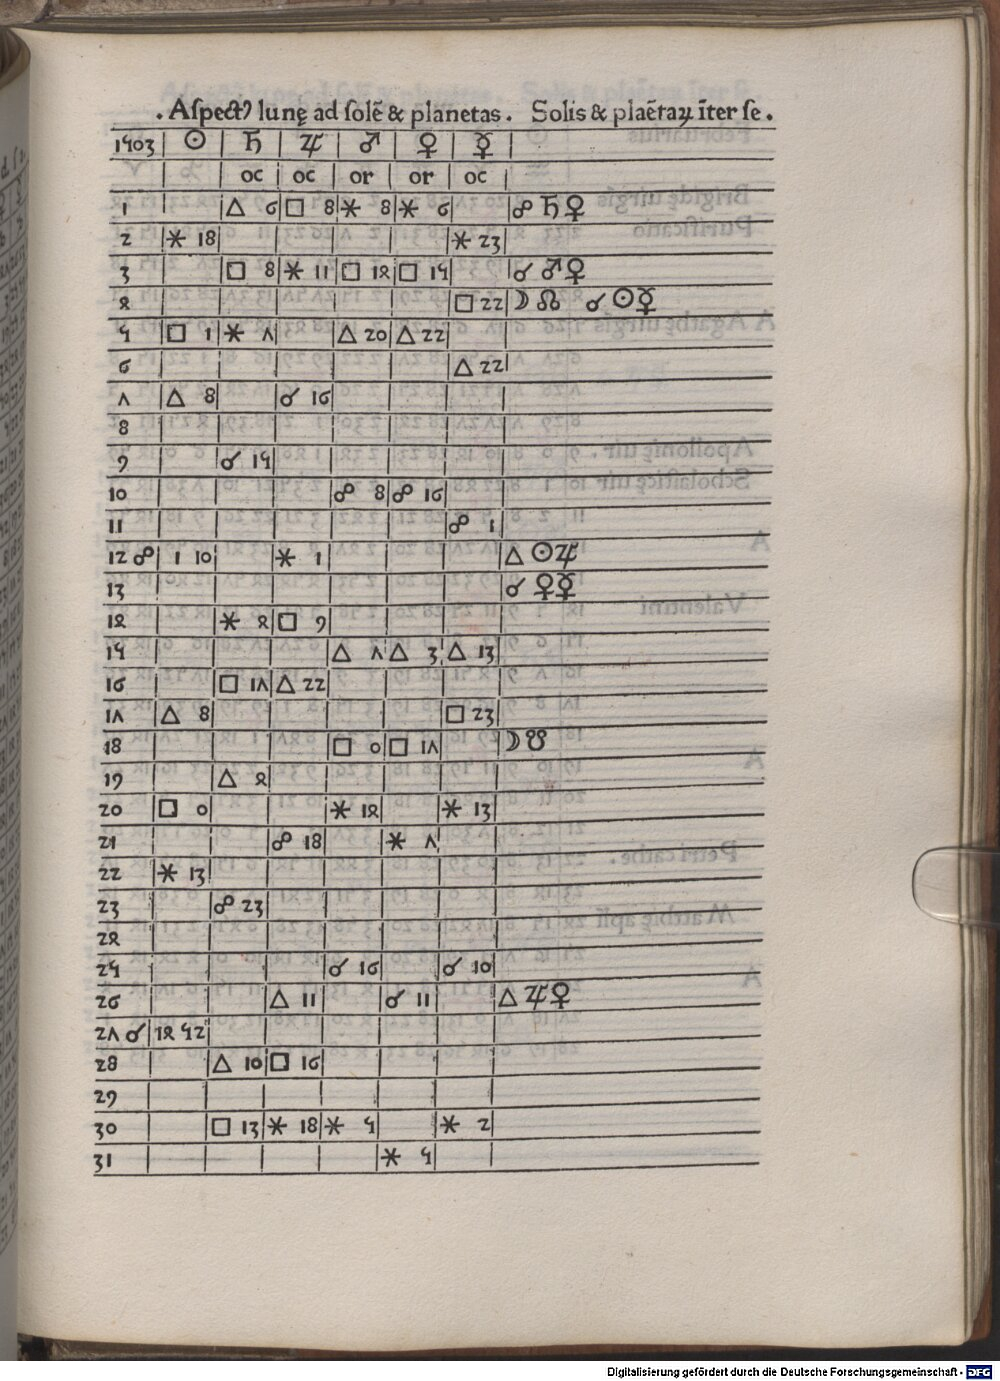 . Aſpectꝰ lunę ad ſolē & planetas . Solis & plaētaꝝ īter ſe .
1503 ☉ ♄ ♃ ♂ ♀ ☿
oc oc or or oc
1 △ 6 □ 8 ⚹ 8 ⚹ 6 ☍ ♄ ♀
2 ⚹ 18 ⚹ 23
3 □ 8 ⚹ 11 □ 14 □ 15 ☌ ♂ ♀
4 □ 22 ☽ ☊ ☌ ☉ ☿
5 □ 1 ⚹ 7 △ 20 △ 22
6 △ 22
7 △ 8 ☌ 16
8
9 ☌ 15
10 ☍ 8 ☍ 16
11 ☍ 1
12 ☍ 1 10 ⚹ 1 △ ☉ ♃
13 ☌ ♀ ☿
14 ⚹ 4 □ 9
15 △ 7 △ 3 △ 13
16 □ 17 △ 22
17 △ 8 □ 23
18 □ 0 □ 17 ☽ ☋
19 △ 4
20 □ 0 ⚹ 14 ⚹ 13
21 ☍ 18 ⚹ 7
22 ⚹ 13
23 ☍ 23
24
25 ☌ 16 ☌ 10
26 △ 11 ☌ 11 △ ♃ ♀
27 ☌ 14 52
28 △ 10 □ 16
29
30 □ 13 ⚹ 18 ⚹ 5 ⚹ 2
31 ⚹ 5
Digitalisierung gefördert durch die Deutsche Forschungsgemeinschaft - DFG